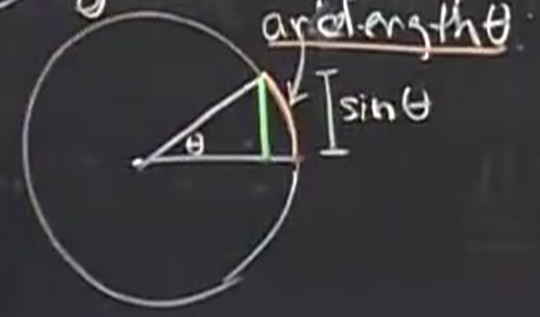 arclength θ
sin θ
θ